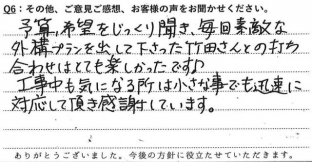 Q6：その他、ご意見ご感想、お客様の声をお聞かせください。
予算,希望をじっくり聞き、毎回素敵な
外構プランを出して下さった竹田さんとの打ち
合わせはとても楽しかったです♪
工事中も気になる所は小さな事でも迅速に
対応して頂き感謝しています。
ありがとうございました。今後の方針に役立たせていただきます。